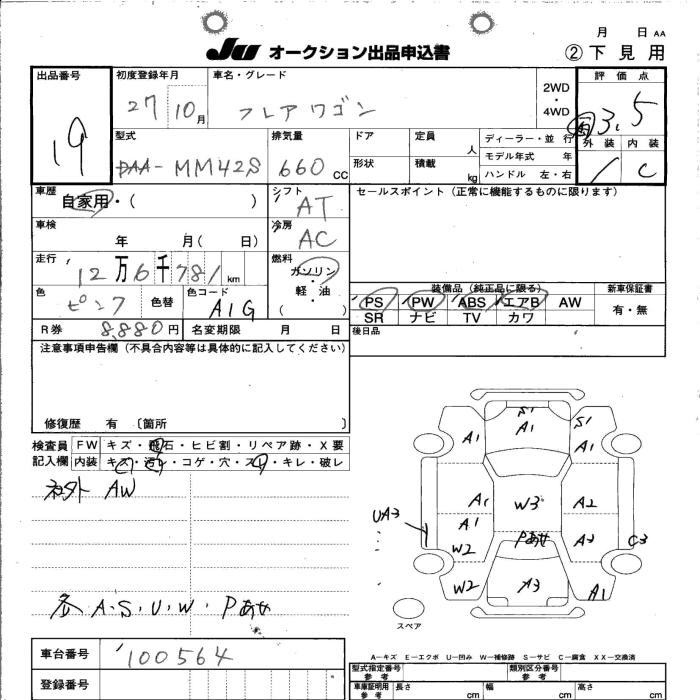 月 日 AA
JU オークション出品申込書 ②下見用
出品番号 19
初度登録年月 27 10月
車名・グレード フレアワゴン
2WD・4WD
評価点 3.5
外装 内装 C
型式 DAA-MM42S
排気量 660 CC
ドア 定員 人
形状 積載 kg
ディーラー・並行
モデル年式 年
ハンドル 左・右
車歴 自家用・( )
シフト AT
セールスポイント(正常に機能するものに限ります)
車検 年 月( 日)
冷房 AC
走行 12万6千781km
燃料 ガソリン・軽油 ( )
色 ピンク 色替 色コード A1G
装備品(純正品に限る) 新車保証書
PS PW ABS エアB AW 有・無
SR ナビ TV カワ
R券 8,880円 名変期限 月 日
後日品
注意事項申告欄(不具合内容等は具体的に記入してください)
修復歴 有 〔箇所 〕
検査員記入欄 FW キズ・飛石・ヒビ割・リペア跡・X要
内装 キズ・汚れ・コゲ・穴・スレ・キレ・破レ
社外 AW
各 A・S・U・W・Pあせ
S1
A1
S1
A1
A1
A1
W3
A2
UA3
A1
W2
Pあせ
A3
C3
W2
A3
A1
スペア
A−キズ E−エクボ U−凹み W−補修跡 S−サビ C−腐食 XX−交換済
車台番号 100564
型式指定番号 参考 類別区分番号 参考
登録番号
車庫証明用 参考 長さ cm 幅 cm 高さ cm